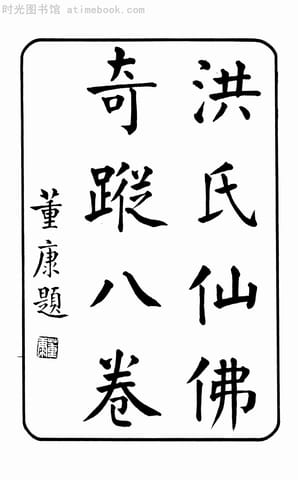 时光图书馆 atimebook.com
洪氏仙佛
奇蹤八卷
董康題